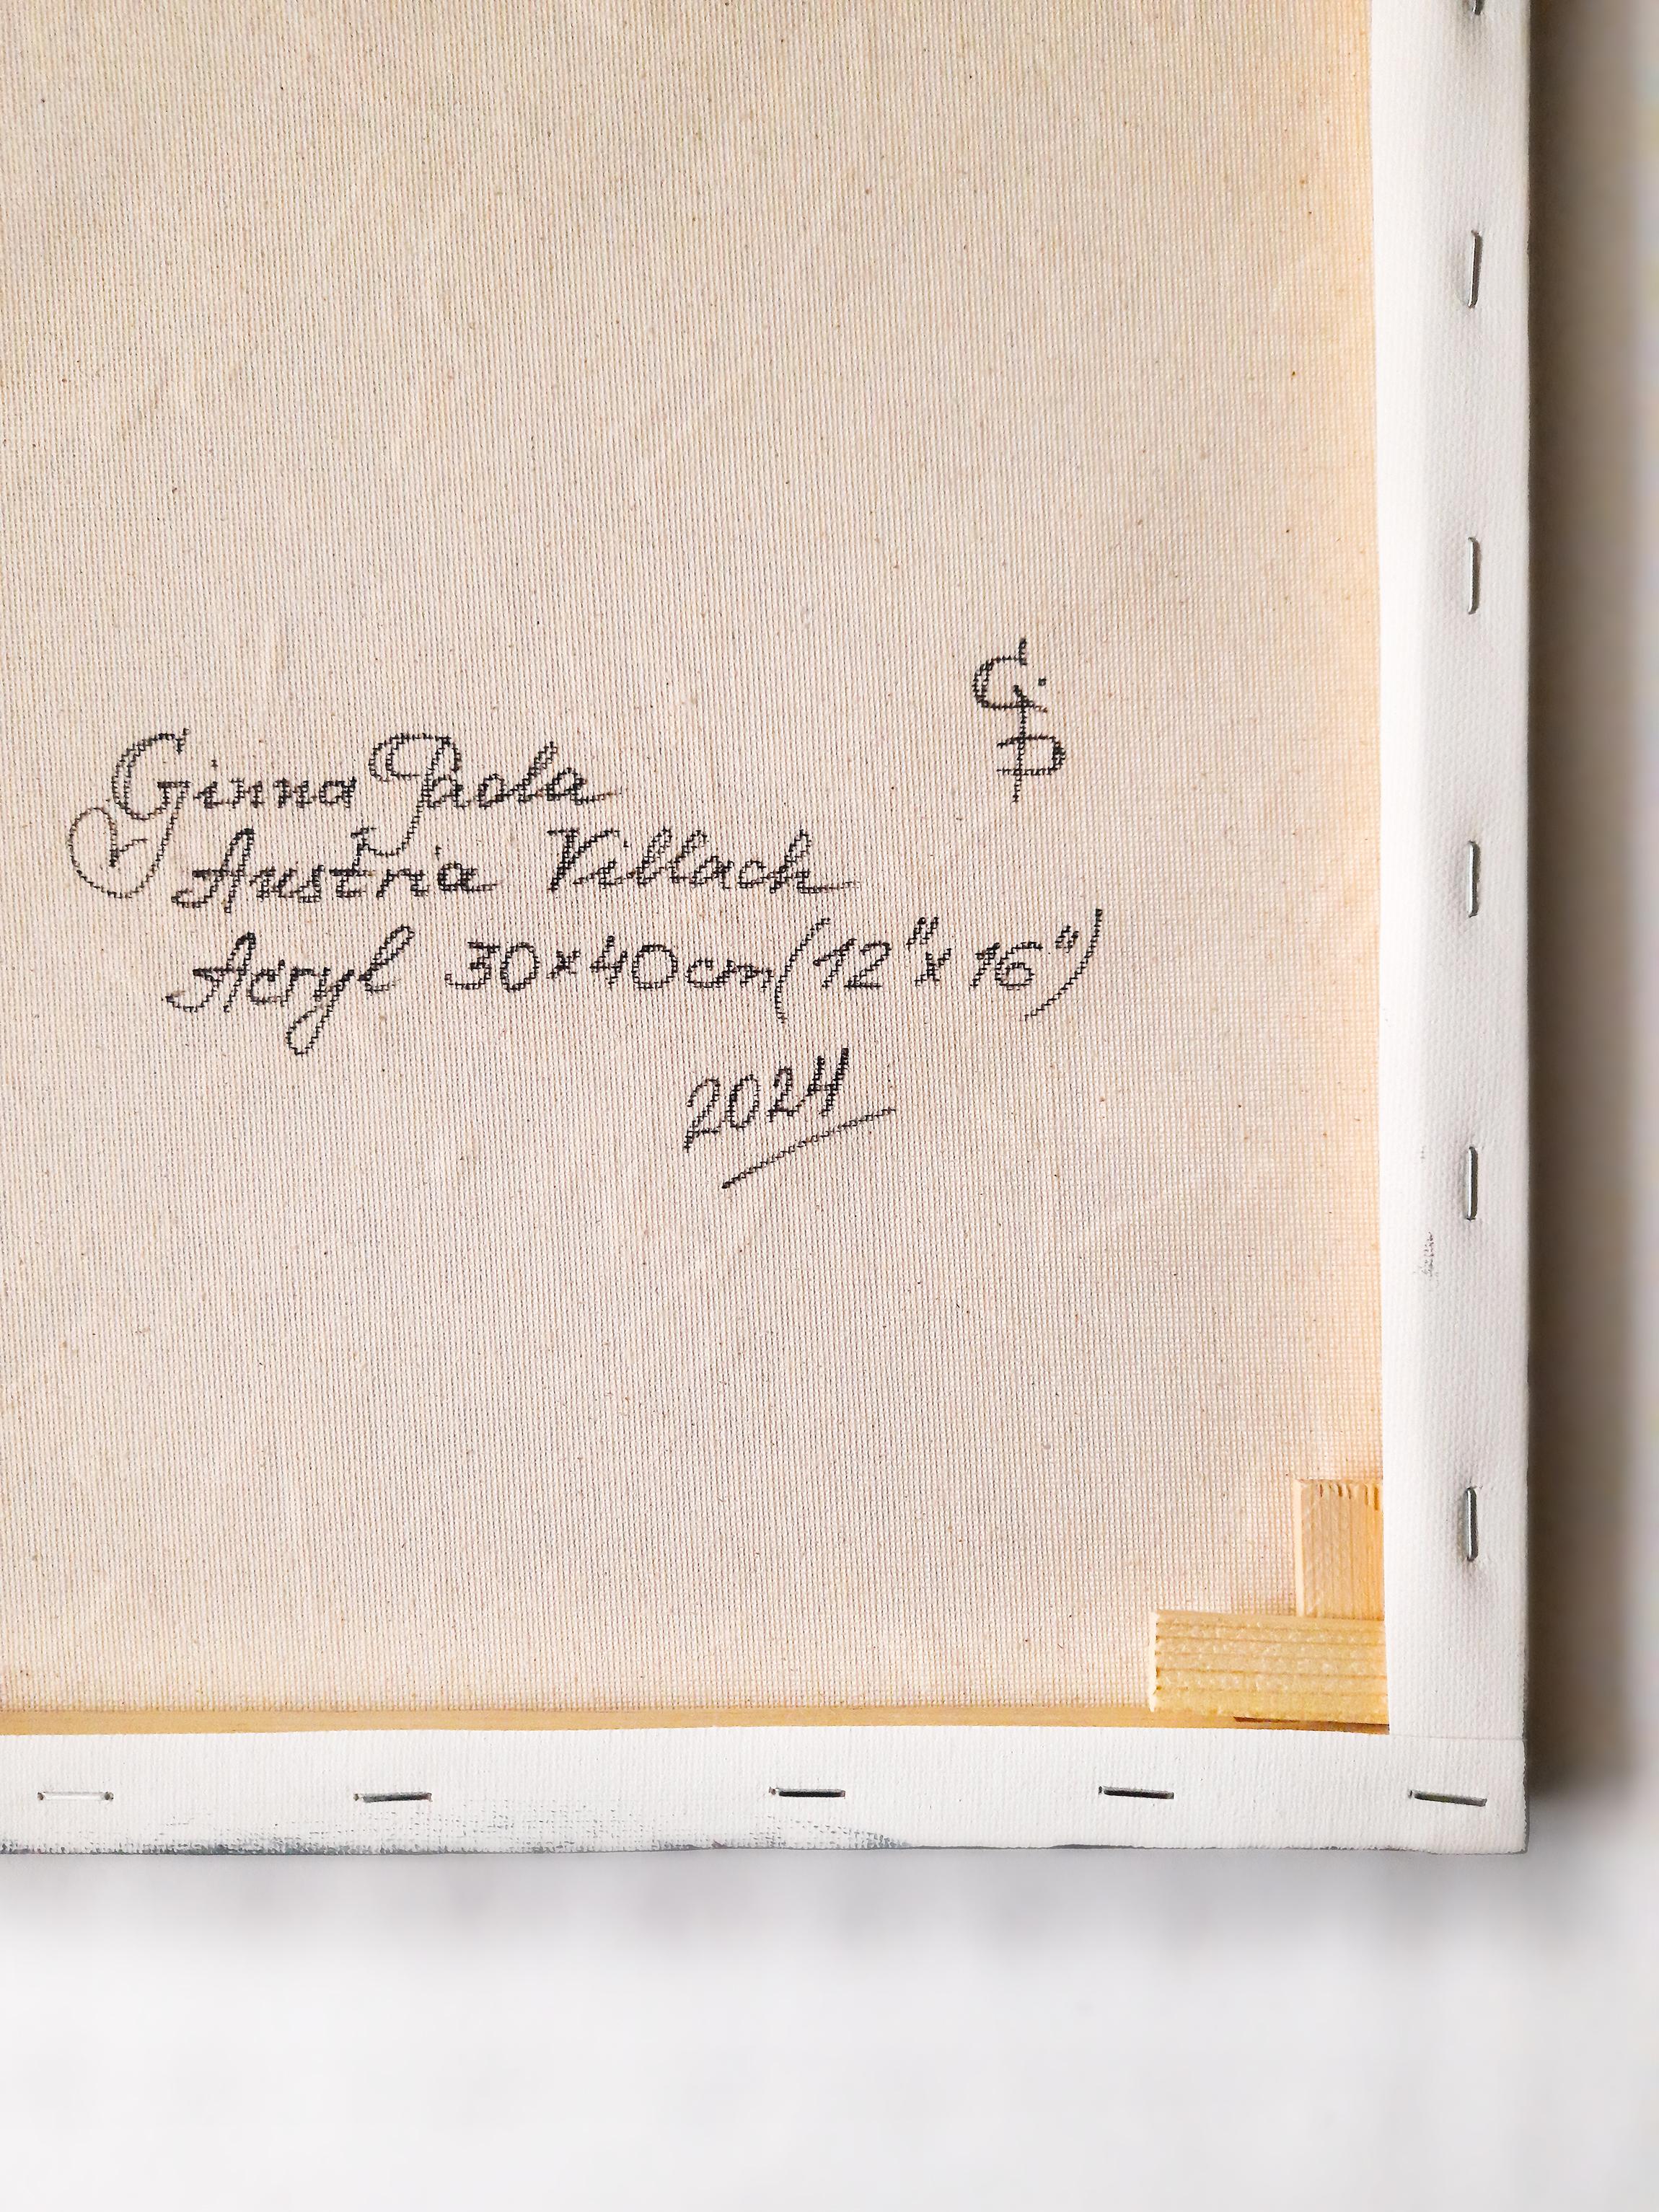 G.P
Ginna Paola
Austria Villach
Acryl 30x40cm/12"x16")
2024